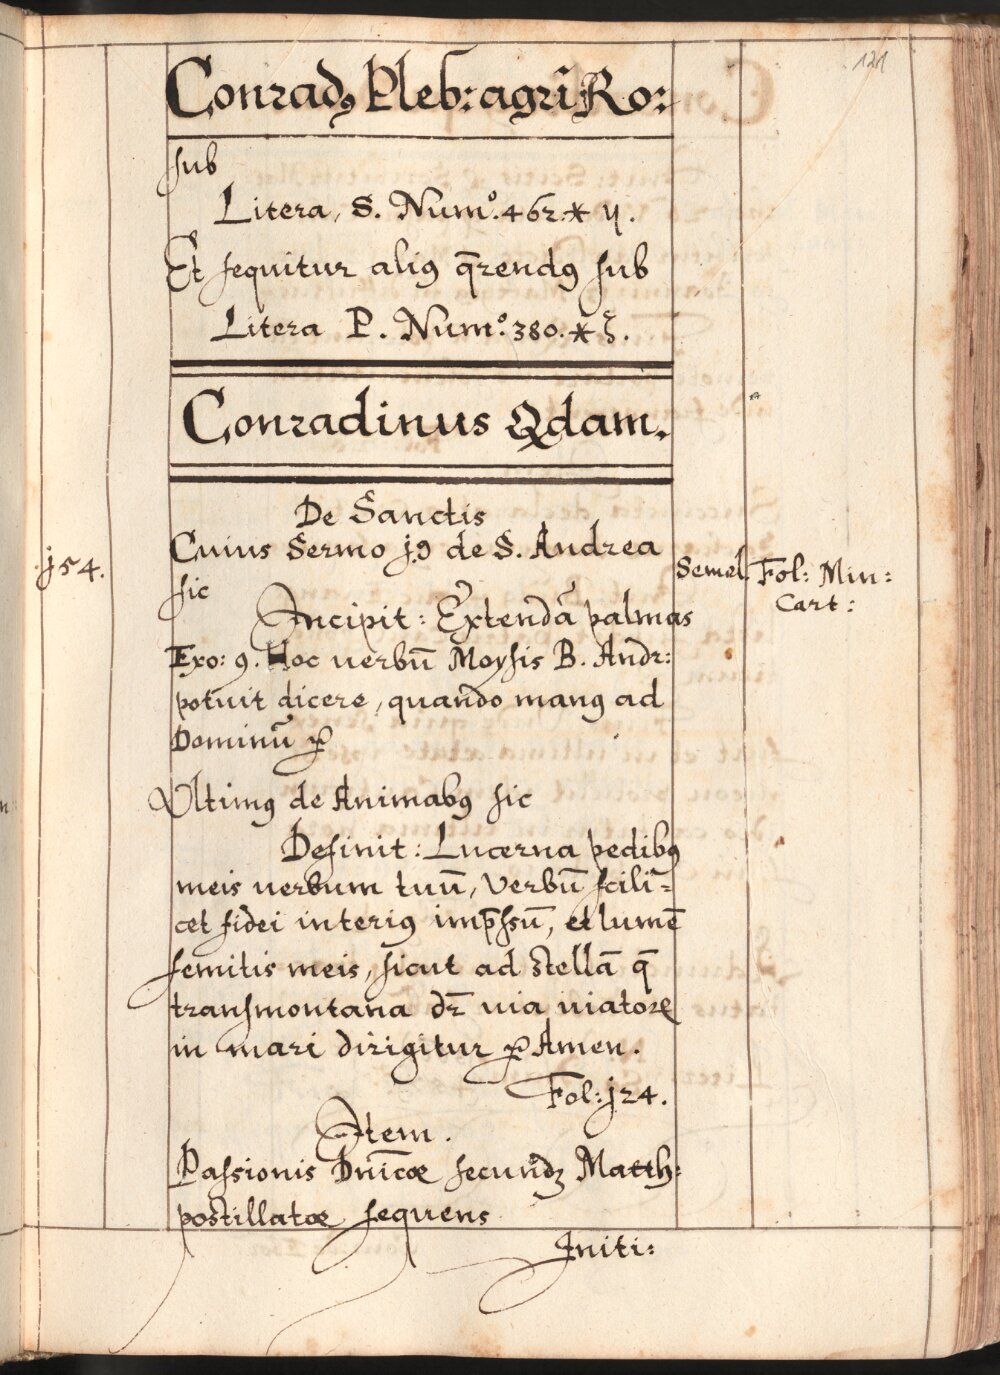 121
Conradꝰ Pleb: agri Ro:
sub
Litera, S. Numº. 462. * η.
Et sequitur aliꝰ q̄rendꝰ sub
Litera P. Numº. 380. * ξ.
Conradinus Qdam.
De Sanctis
j54.
Cuius Sermo j.9 de S. Andrea
Semel. Fol: Min:
Cart:
sic
Incipit: Extendā palmas
Exo: 9. Hoc verbū Moysis B. Andr:
potuit dicere, quando manꝰ ad
Dominū ꝛc
Ultimꝰ de Animabꝰ sic
Definit: Lucerna pedibꝰ
meis verbum tuū, Verbū scili=
cet fidei interiꝰ imp̄ssū, et lumē
semitis meis, sicut ad stellā q̄
transmontana dr̄ via viatorꝫ
in mari dirigitur ꝛc Amen.
Fol: j24.
Item.
Passionis Dn̄icæ secundꝫ Matth:
postillatæ sequens
Initi: